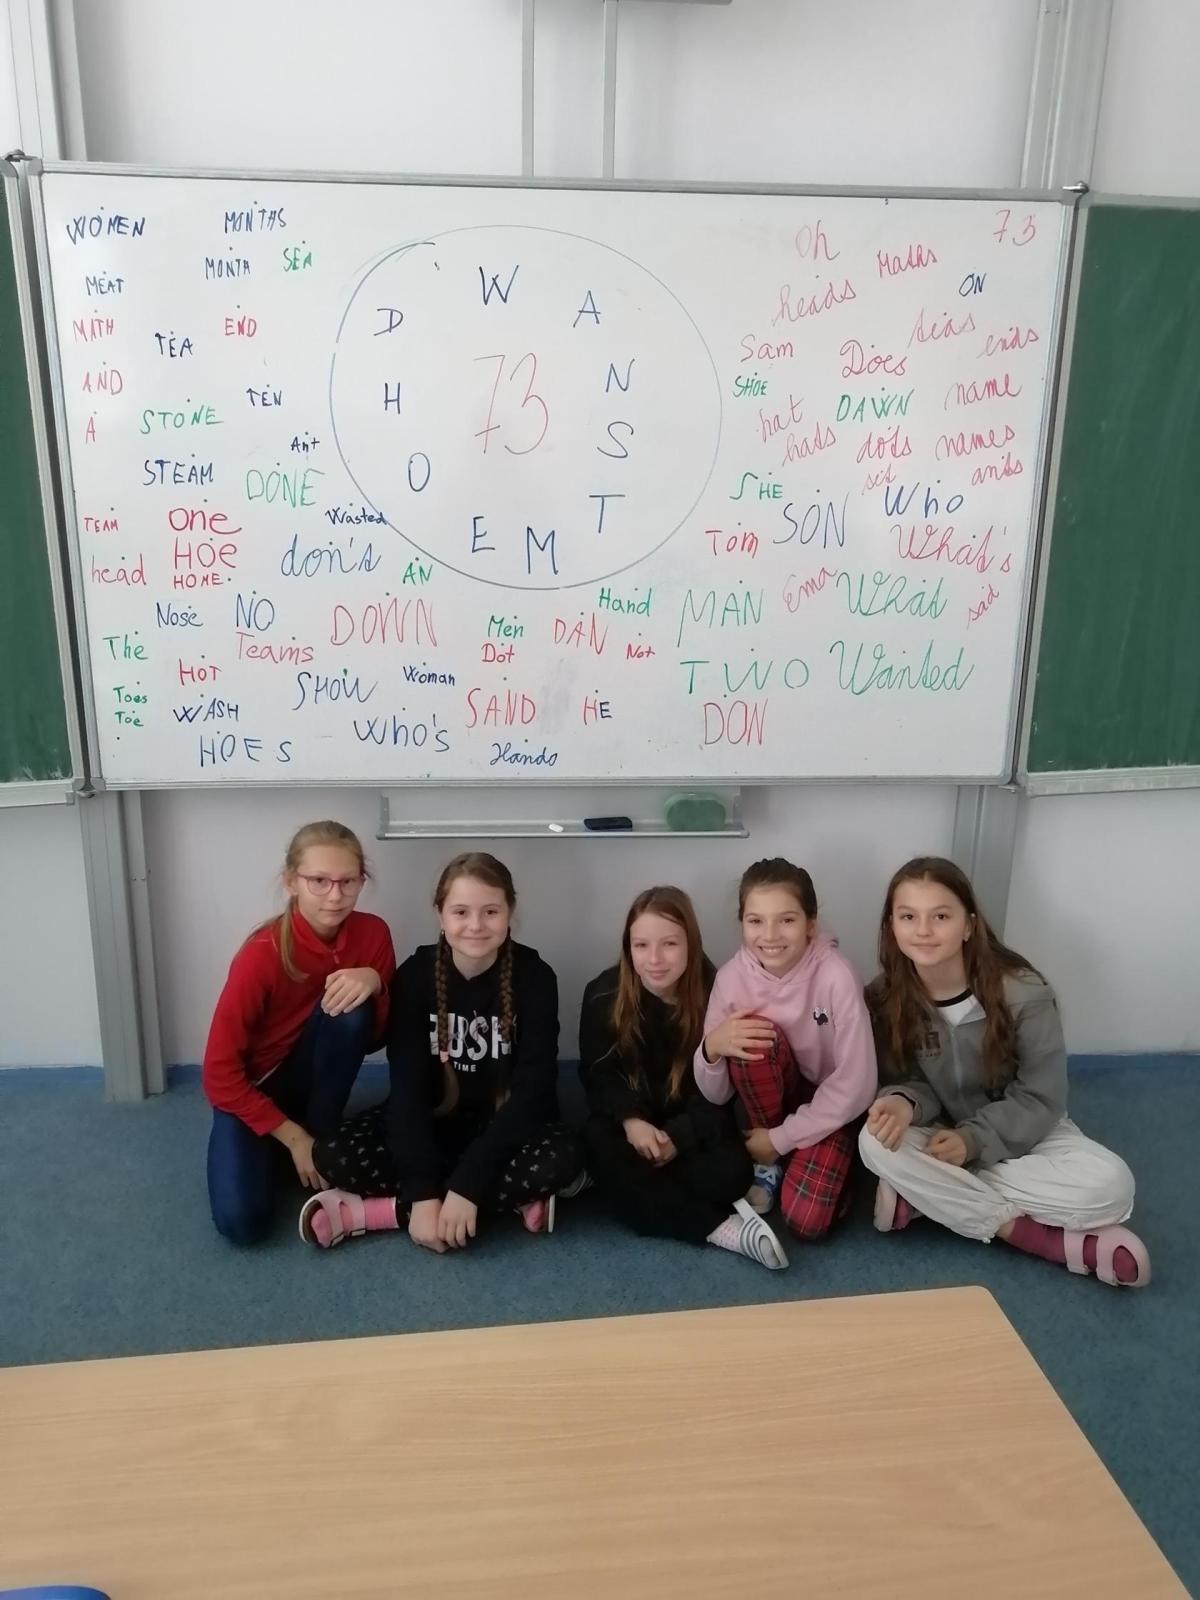 WOMEN
MONTHS
MONTH
SEA
MEAT
MATH
TEA
END
AND
TEN
A
STONE
Ant
STEAM
DONE
TEAM
One
Wasted
HOE
don's
head
HOME
AN
Nose
NO
DOWN
The
Teams
HOT
SHOW
Woman
Toes
Toe
WASH
HOES
Who's
D
W
A
H
73
N
S
O
T
E
M
Hand
Men
DAN
Not
Dot
SAND
HE
Hands
Oh
73
Maths
heads
ON
seas
Sam
Does
ends
SHOE
name
hat
DAWN
hats
dots
names
ants
SHE
sit
SON
Who
Tom
What's
MAN
Ema
What
said
TWO
Wanted
DON
TIME